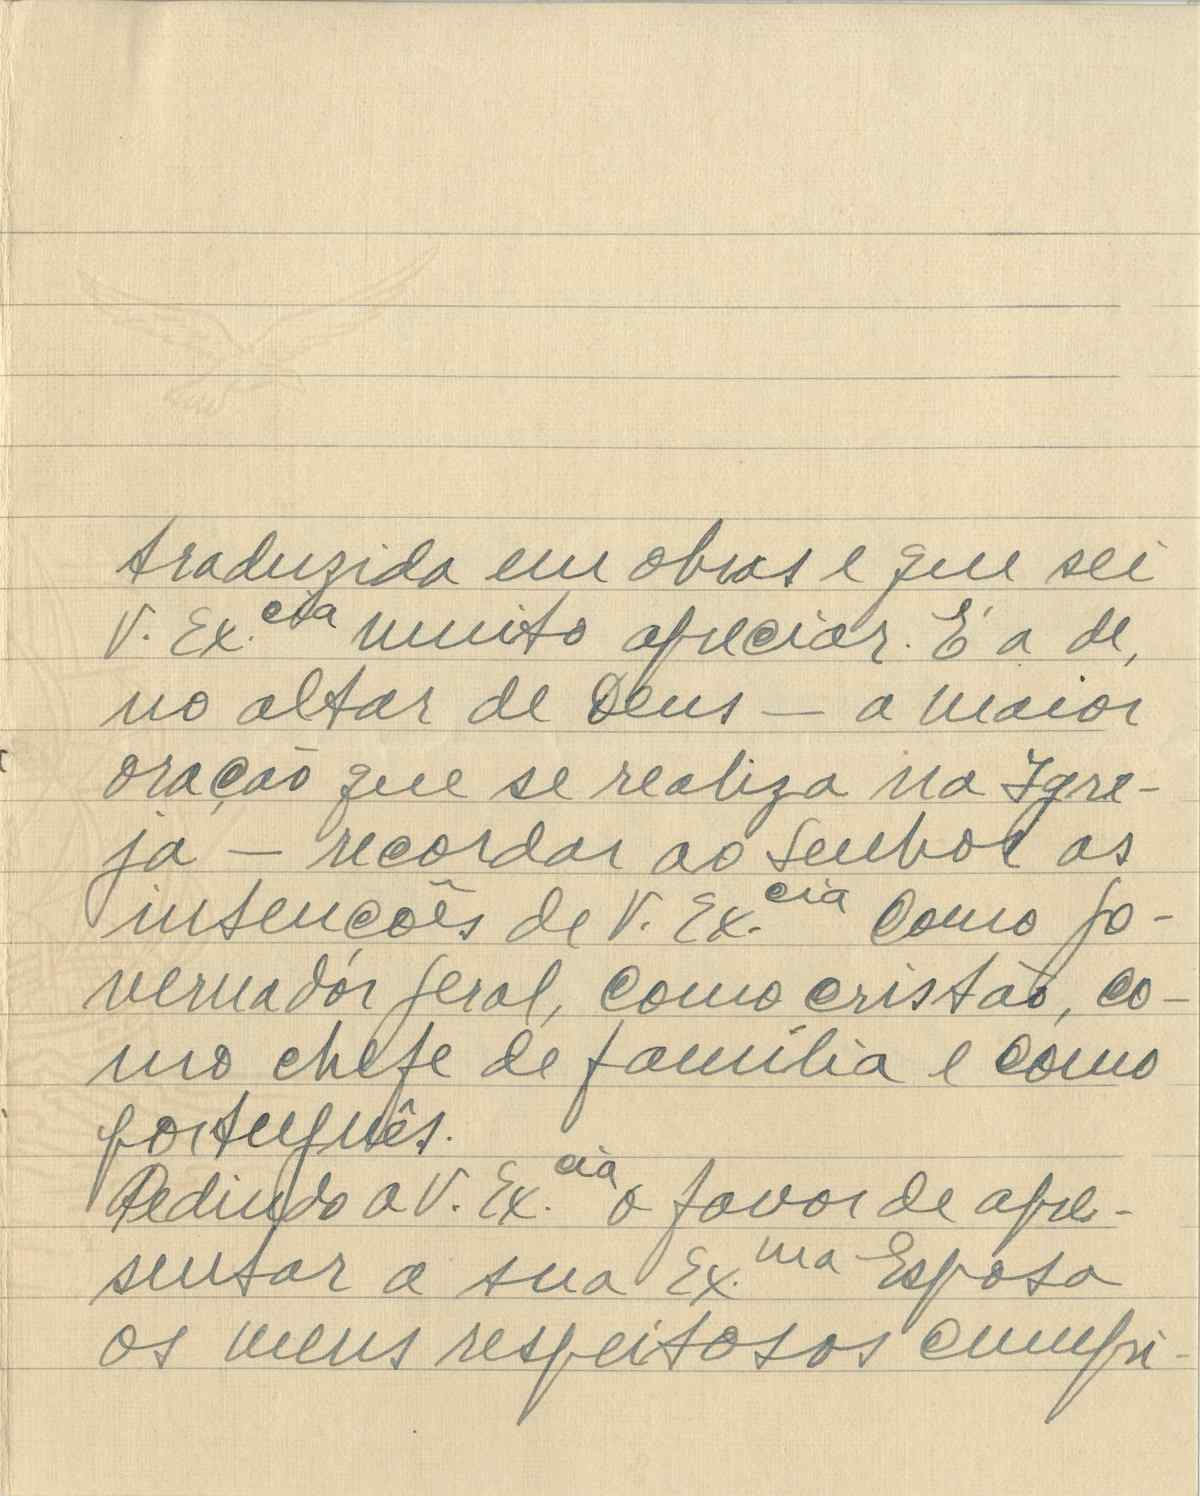 traduzida em obras e que sei
V. Ex.cia muito apreciar. É a de,
no altar de Deus — a maior
oração que se realiza na Igre-
ja — recordar ao Senhor as
intenções de V. Ex.cia como go-
vernador geral, como cristão, co-
mo chefe de família e como
português.
Pedindo a V. Ex.cia o favor de apre-
sentar a sua Ex.ma Esposa
os meus respeitosos cumpri-